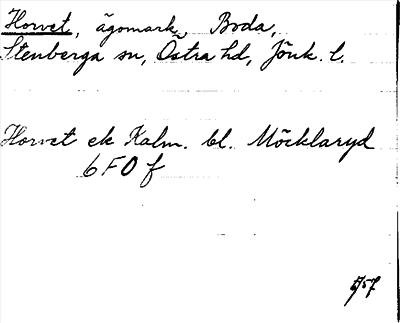 Horvet, ägomark, Boda,
Stenberga sn, Östra hd, Jönk. l.
Horvet ek Kalm. bl. Möcklaryd
6 F 0 f